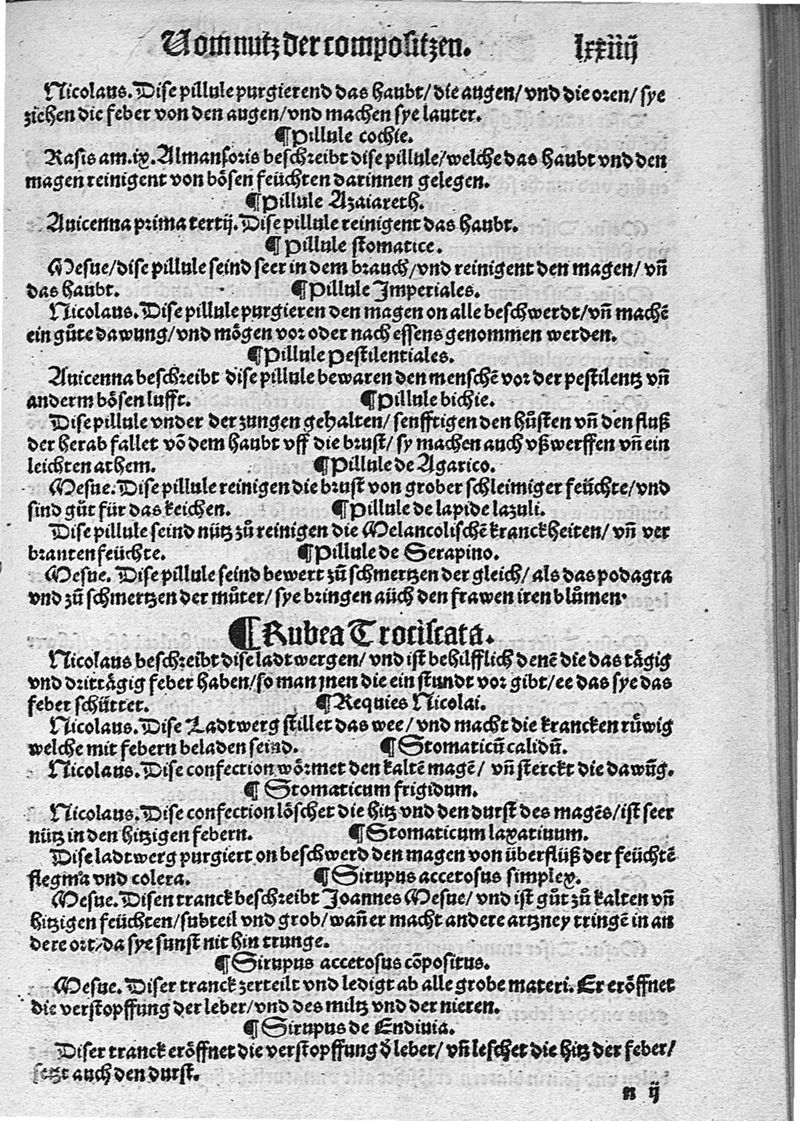 Vom nutz der compositzen. lxxiiij
Nicolaus. Dise pillule purgierend das haubt/ die augen/ vnd die oren/ sye
ziehen die feber von den augen/ vnd machen sye lauter.
¶ Pillule cochie.
Rasis am .ix. Almansoris beschreibt dise pillule/ welche das haubt vnd den
magen reinigent von bösen feüchten darinnen gelegen.
¶ Pillule Azaiareth.
Auicenna prima tertij. Dise pillule reinigent das haubt.
¶ Pillule stomatice.
Mesue/ dise pillule seind seer in dem brauch/ vnd reinigent den magen/ vñ
das haubt. ¶ Pillule Imperiales.
Nicolaus. Dise pillule purgieren den magen on alle beschwerdt/ vñ machē
ein gůte dawung/ vnd mögen vor oder nach essens genommen werden.
¶ Pillule Pestilentiales.
Auicenna beschreibt dise pillule bewaren den menschē vor der pestilentz vñ
anderm bösen lufft. ¶ Pillule bichie.
Dise pillule vnder der zungen gehalten/ senfftigen den hůsten vñ den fluß
der herab fallet vō dem haubt vff die brust/ sy machen auch vßwerffen vñ ein
leichten athem. ¶ Pillule de Agarico.
Mesue. Dise pillule reinigen die brust von grober schleimiger feüchte/ vnd
sind gůt für das keichen. ¶ Pillule de lapide lazuli.
Dise pillule seind nütz zů reinigen die Melancolischē kranckheiten/ vñ ver
branten feüchte. ¶ Pillule de Serapino.
Mesue. Dise pillule seind bewert zů schmertzen der gleich/ als das podagra
vnd zů schmertzen der můter/ sye bringen aüch den frawen iren blůmen.
¶ Rubea Trociscata.
Nicolaus beschreibt dise ladtwergen/ vnd ist behilfflich denē die das tägig
vnd drittägig feber haben/ so man jnen die ein stundt vor gibt/ ee das sye das
feber schüttet. ¶ Requies Nicolai.
Nicolaus. Dise Ladtwerg stillet das wee/ vnd macht die krancken rüwig
welche mit febern beladen seind. ¶ Stomaticū calidū.
Nicolaus. Dise confection wörmet den kaltē magē/ vñ sterckt die dawūg.
¶ Stomaticum frigidum.
Nicolaus. Dise confection löschet die hitz vnd den durst des magēs/ ist seer
nütz in den hitzigen febern. ¶ Stomaticum laxatiuum.
Dise ladtwerg purgiert on beschwerd den magen von überflüß der feüchtē
flegma vnd colera. ¶ Sirupus accetosus simplex.
Mesue. Disen tranck beschreibt Joannes Mesue/ vnd ist gůt zů kalten vñ
hitzigen feüchten/ subteil vnd grob/ wañ er macht andere artzney tringē in an
dere ort/ da sye sunst nit hin trunge.
¶ Sirupus accetosus cōpositus.
Mesue. Diser tranck zerteilt vnd ledigt ab alle grobe materi. Er eröffnet
die verstopffung der leber/ vnd des miltz vnd der nieren.
¶ Sirupus de Endiuia.
Diser tranck eröffnet die verstopffung ď leber/ vñ leschet die hitz der feber/
setzt auch den durst.
n ij